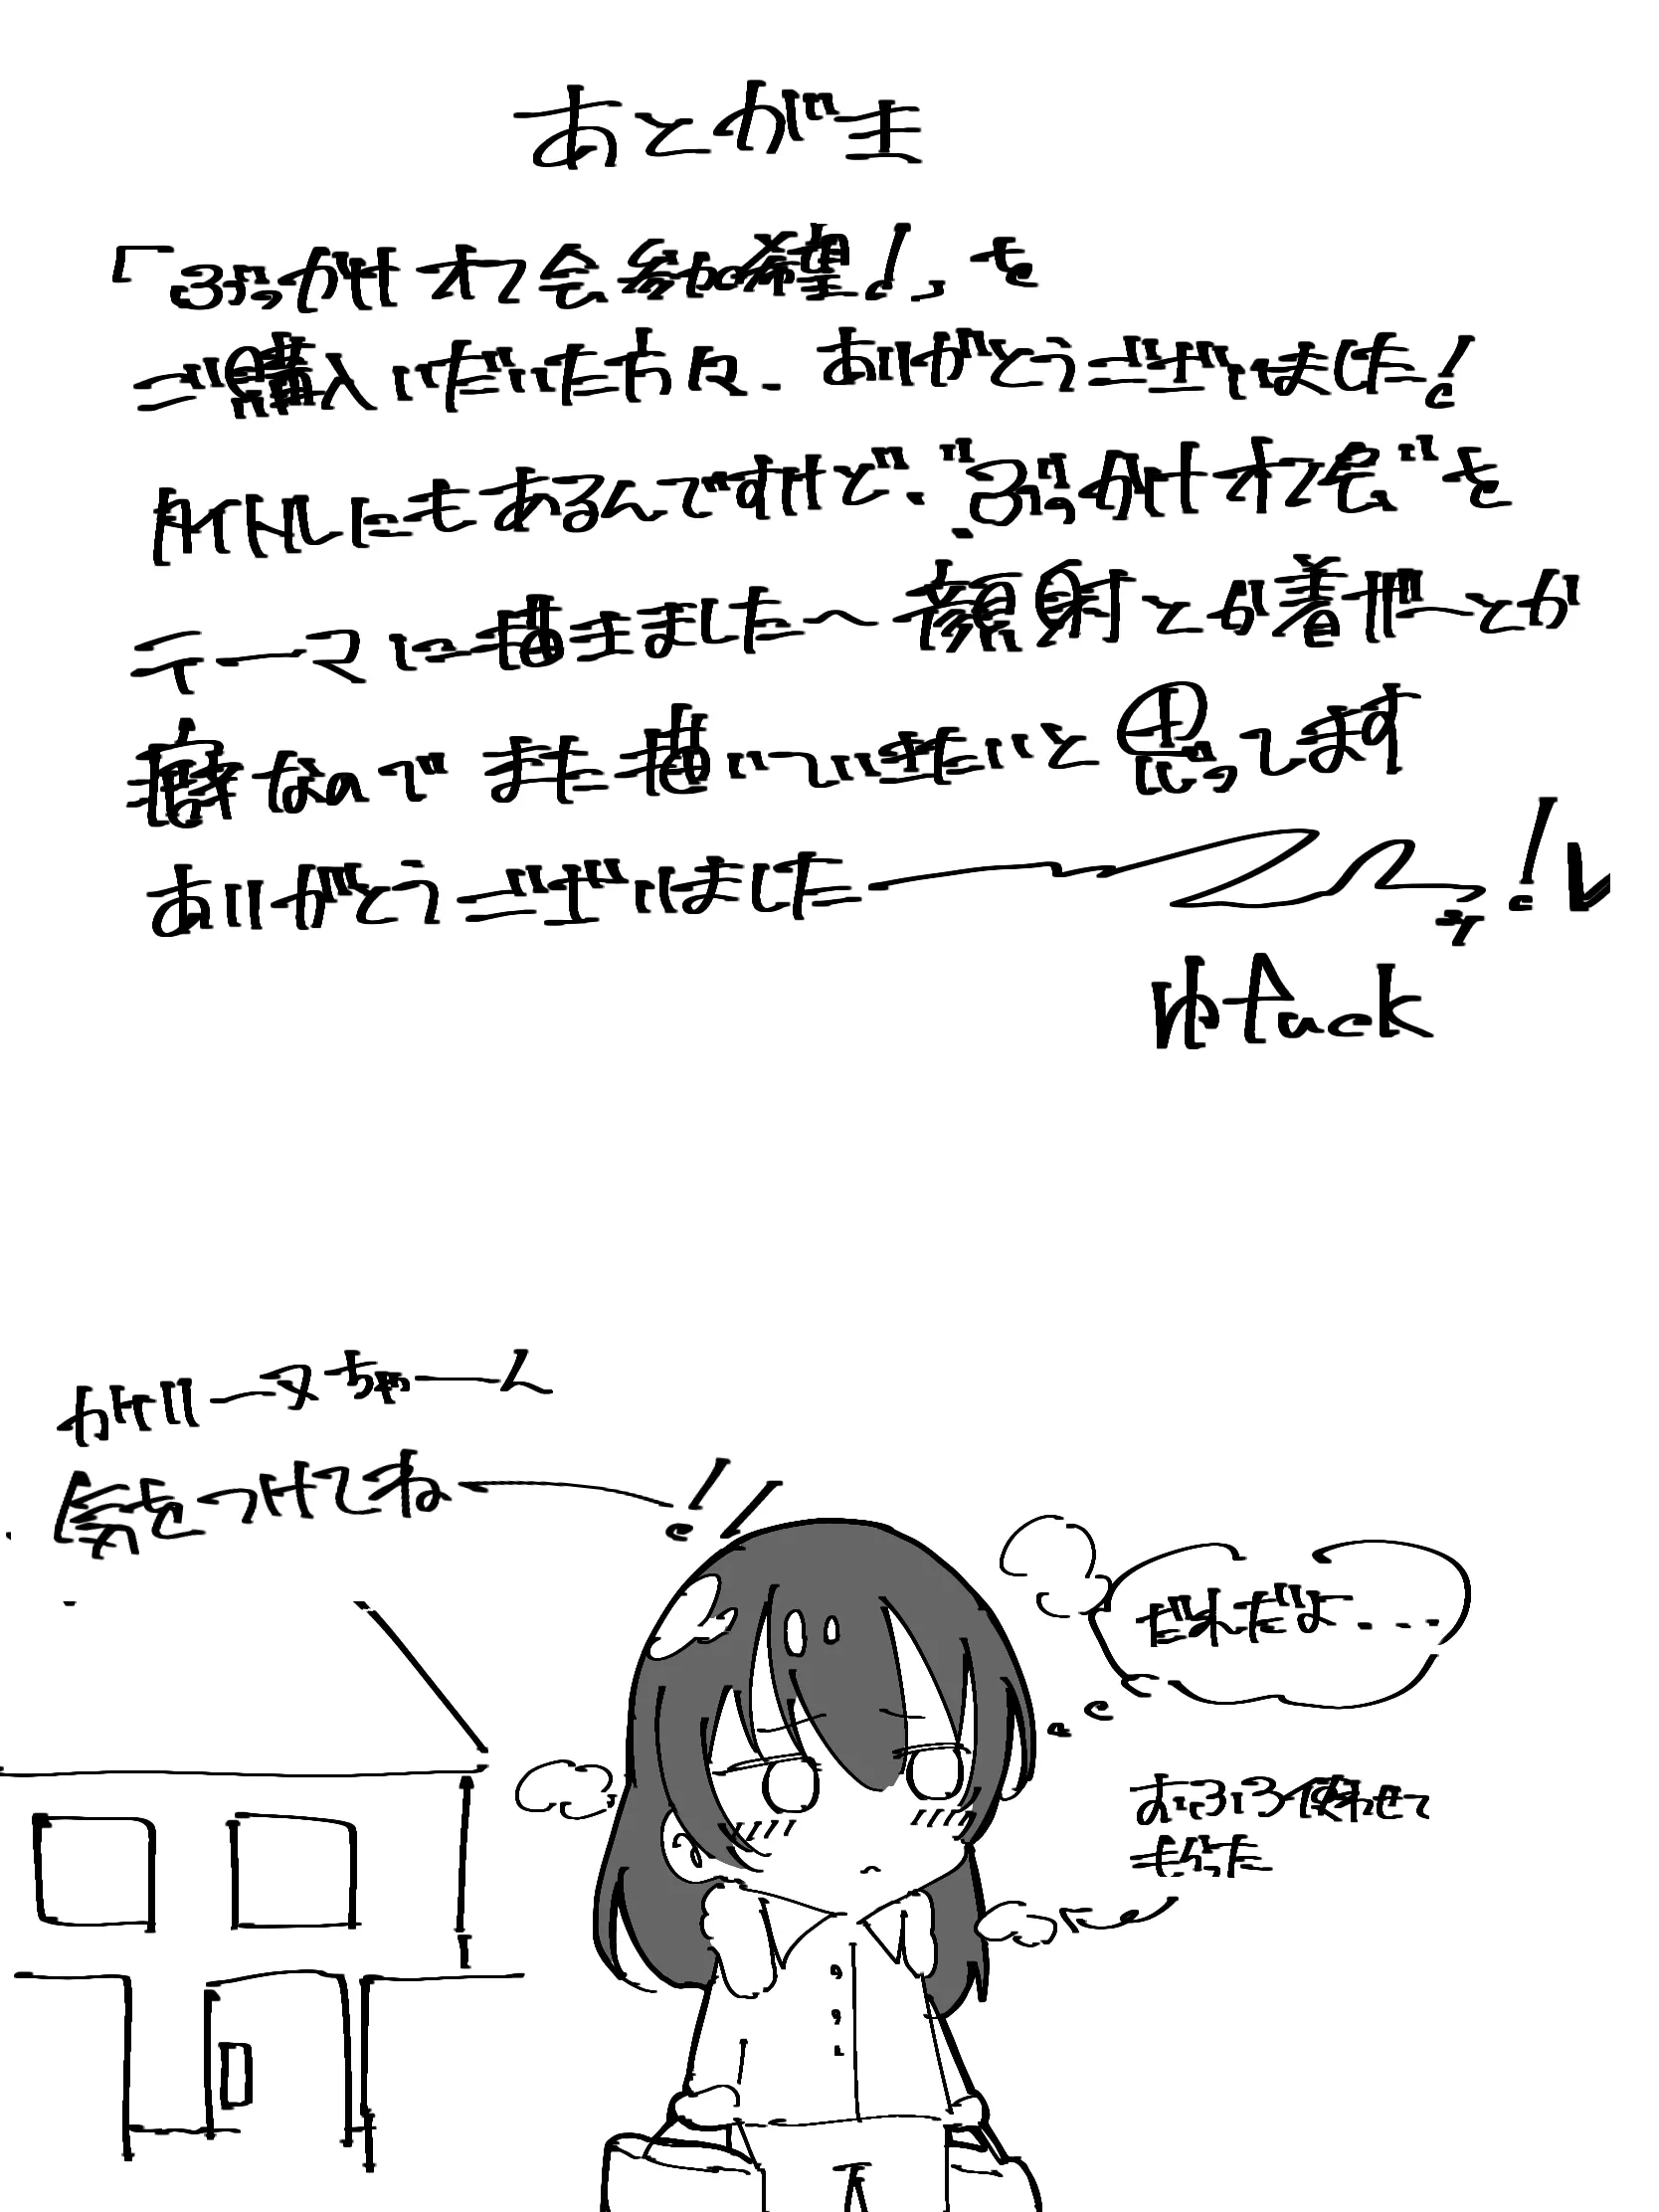 あとがき
「ぶっかけオフ会参加希望!」を
ご購入いただいた方々、ありがとうございました!
タイトルにもあるんですけど、"ぶっかけオフ会"を
テーマに描きました〜顔射とか着ザーとか
癖なのでまた描いていきたいと思ってます
ありがとうございましたー
!
ゆtuck
ガバリーヌちゃーん
気をつけてねー!
だれだよ...
おふろ使わせて
もらった